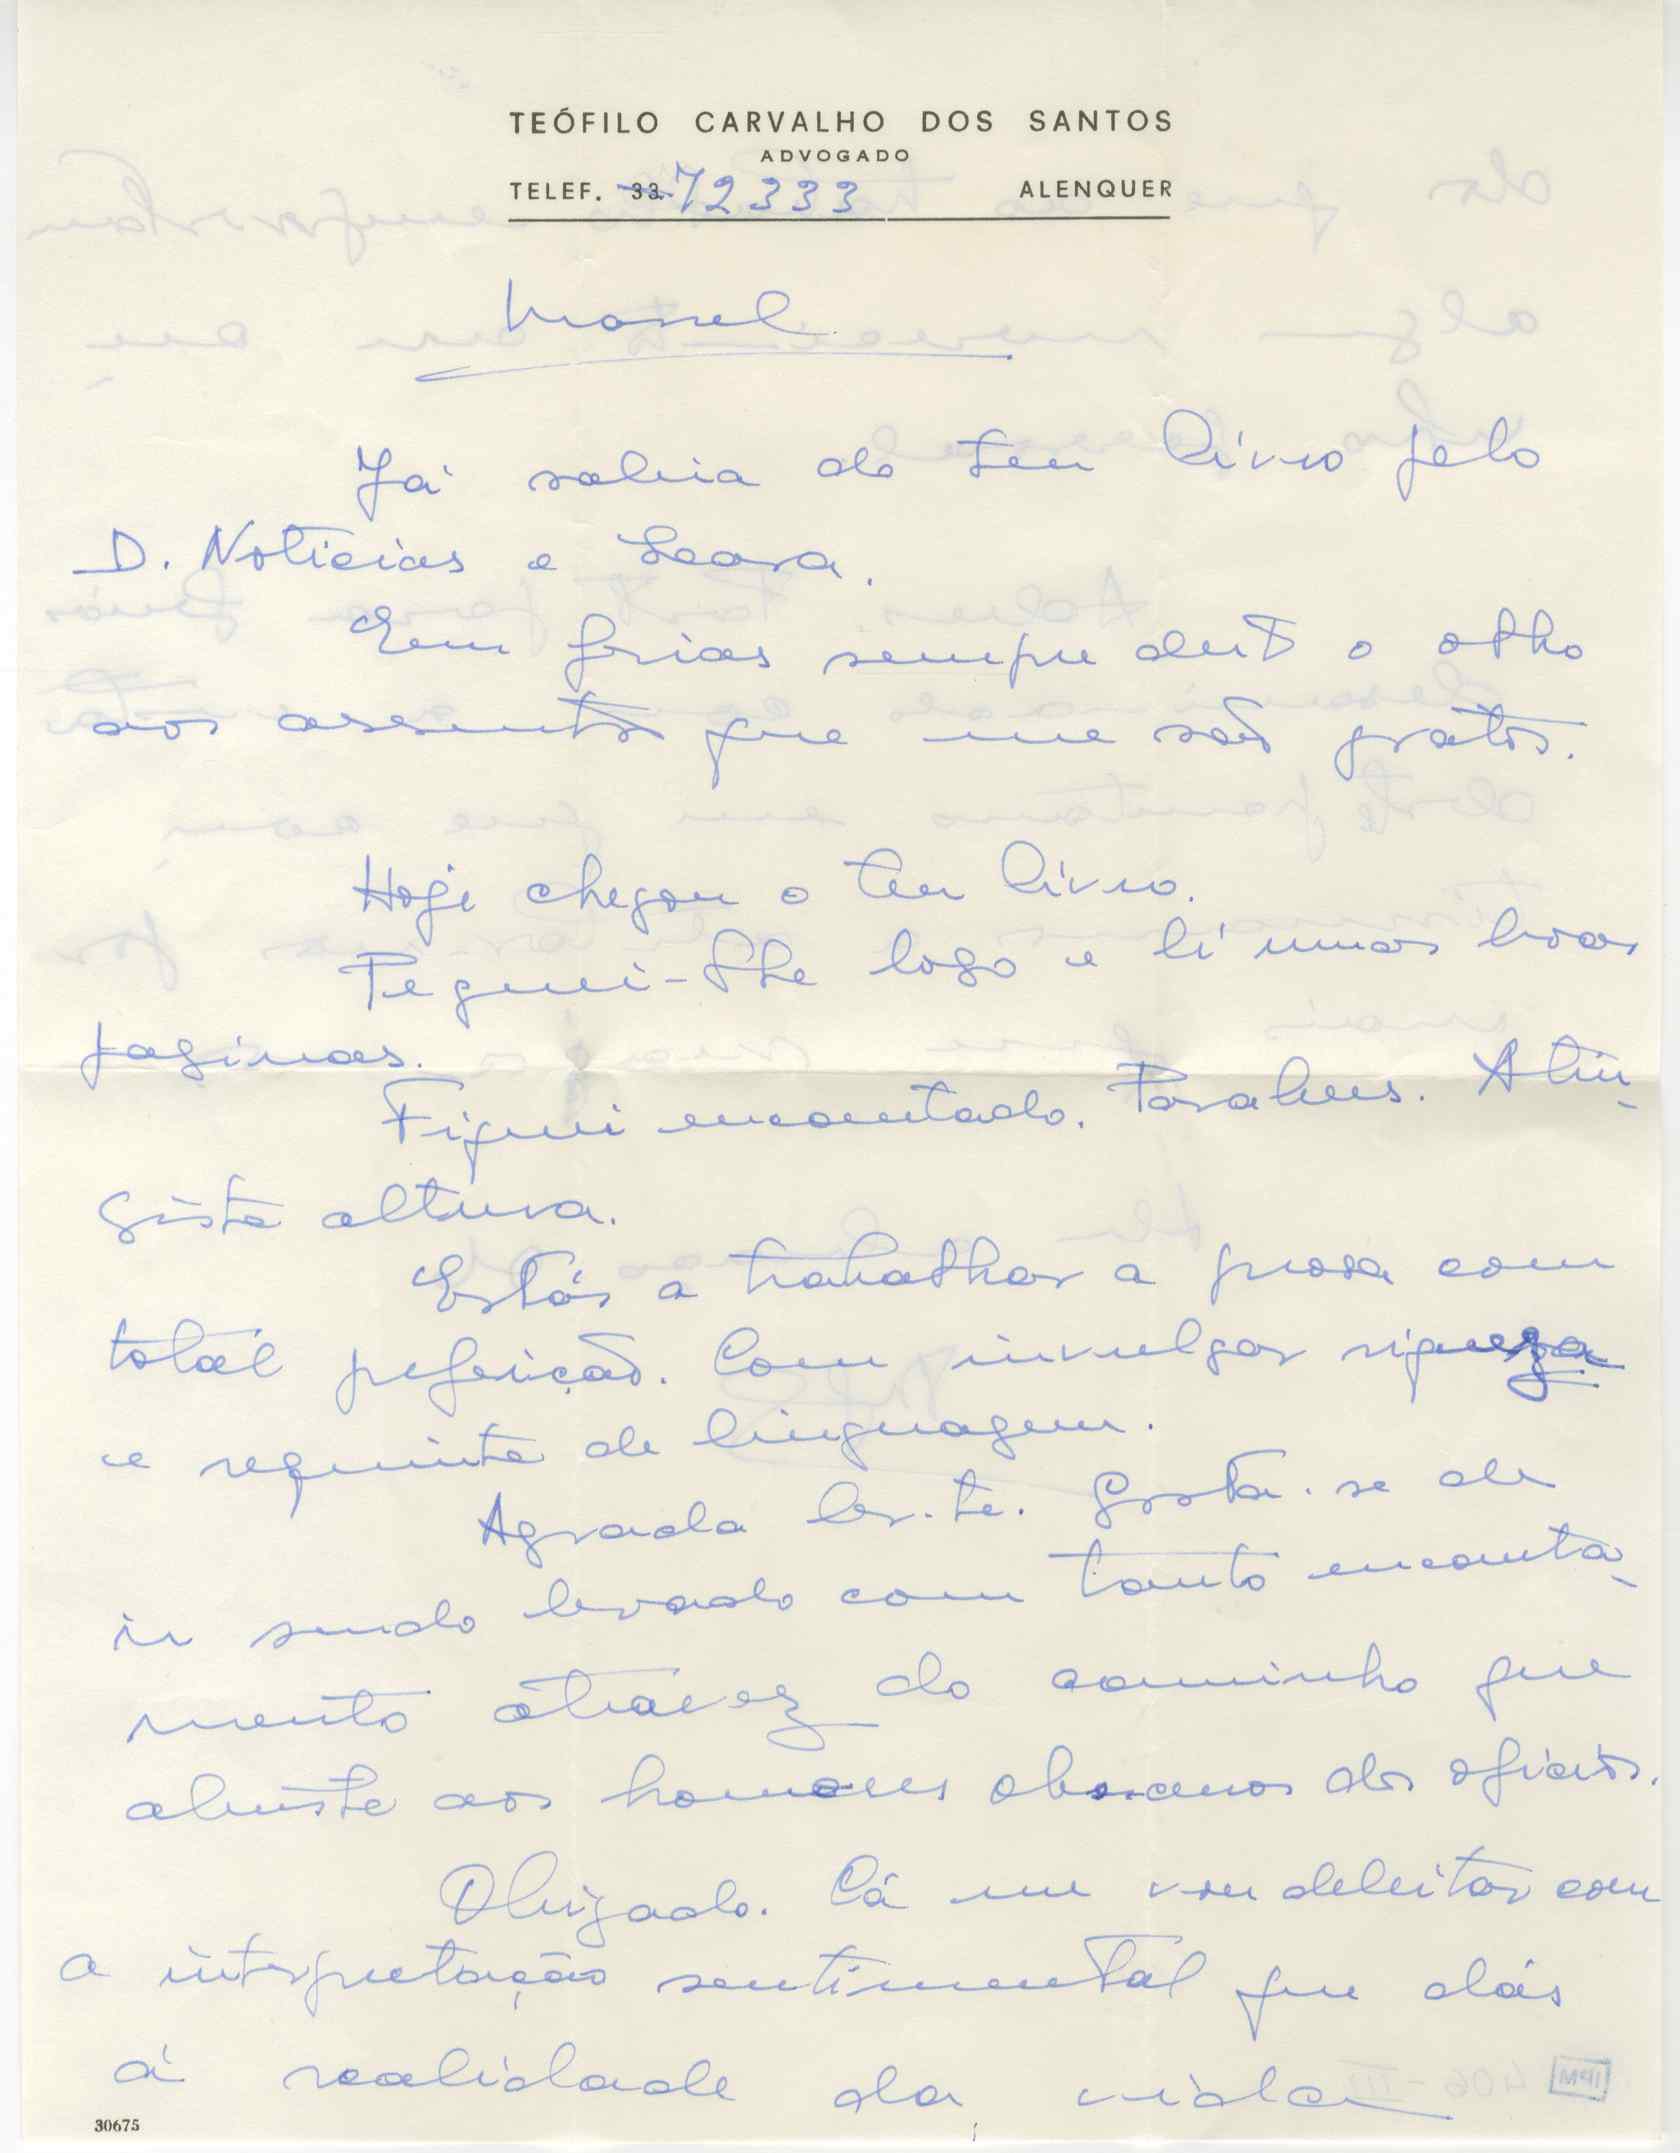 TEÓFILO CARVALHO DOS SANTOS
ADVOGADO
TELEF. 33 72333 ALENQUER
Manel
Já sabia do teu livro pelo
D. Noticias e Seara.
Em ferias sempre deito o olho
aos assuntos que me são gratos.
Hoje chegou o teu livro.
Peguei-lhe logo e li umas boas
paginas.
Fiquei encantado. Parabens. Atin-
giste altura.
Estás a trabalhar a prosa com
total perfeição. Com invulgar riqueza
e requinte de linguagem.
Agrada ler-te. Gosta-se de
ir sendo levado com tanto encanta-
mento atravez do caminho que
abriste aos homens obscuros dos oficios.
Obrigado. Cá me vou deleitar com
a interpretação sentimental que dás
á realidade da vida
30675